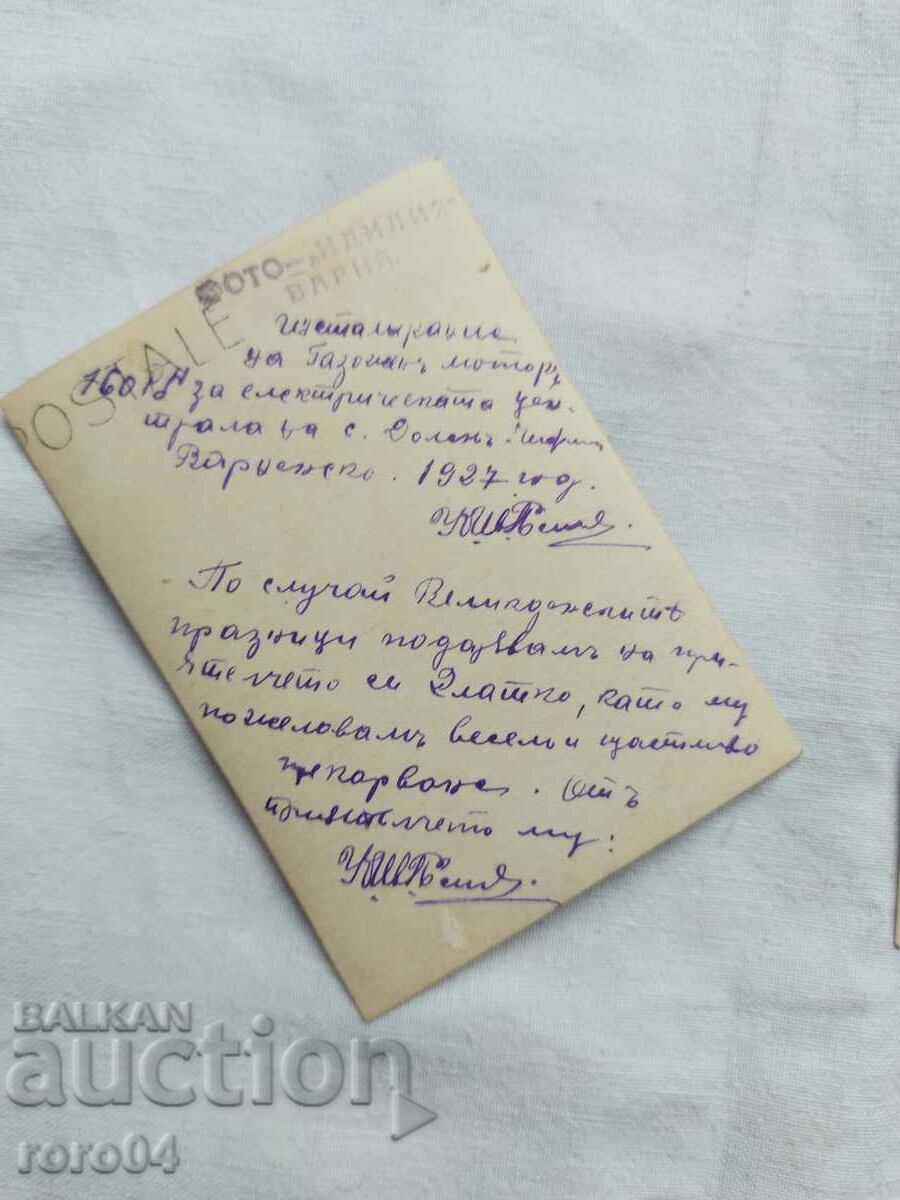 ФОТО—„ИДИЛИЯ"
ВАРНА.
POSTALE
на Газоженъ моторъ
за електрическата цен-
трала на с. Долен
Варненско. 1927 год.
По случай Великденскитѣ
празници подарявамъ на при-
ятелчето си Златко, като му
пожелавамъ весело и щастливо
прекарване. Отъ
приятелчето му:
BALKAN
auction
roro04